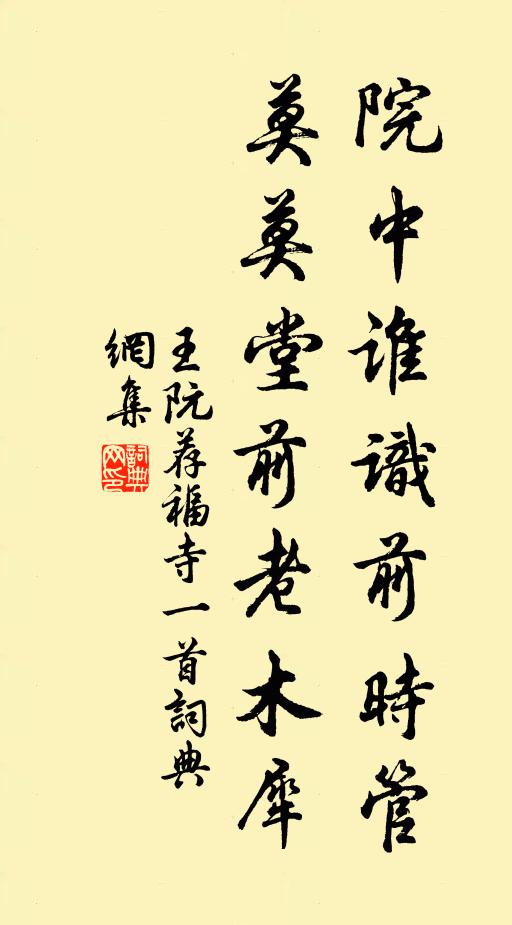 院中誰識前時管
莫莫堂前老木犀
王阮荐福寺一首詞典
網集
詞典
网印